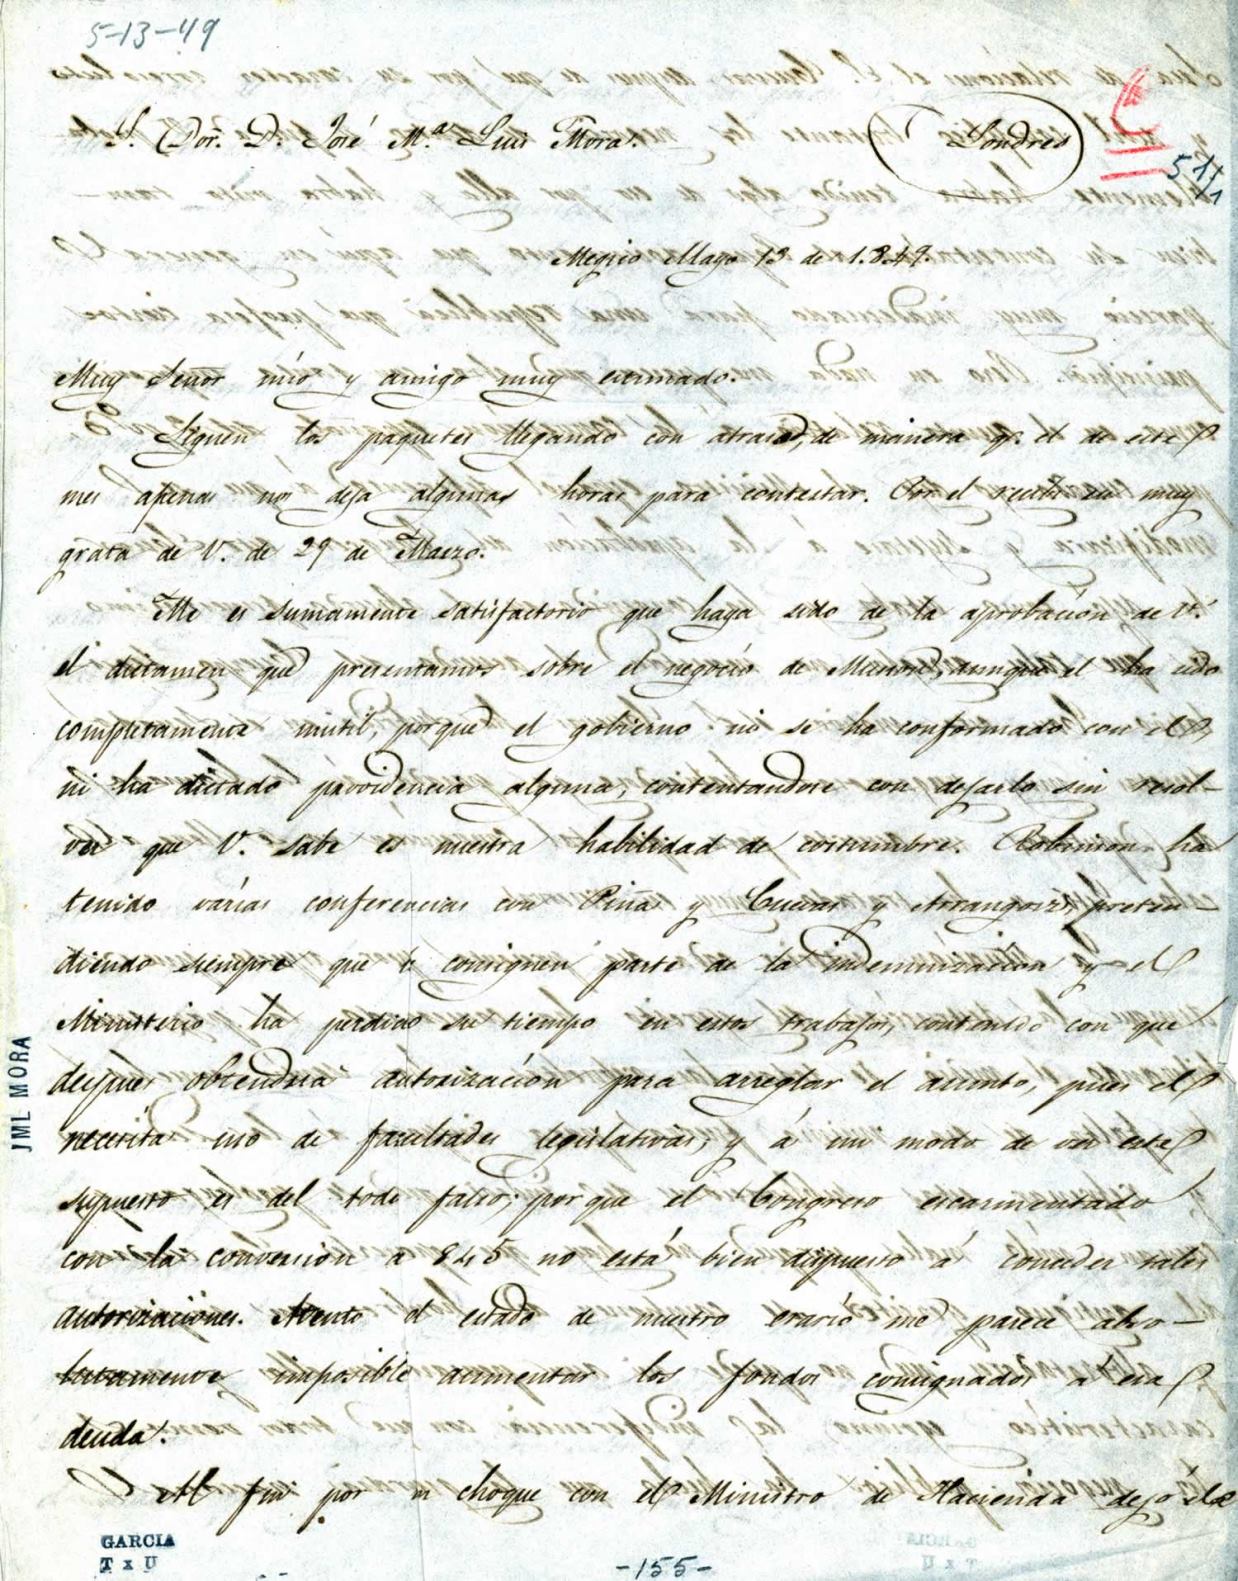 5-13-49
S. Dor. D. José M.ª Luis Mora.
Londres
51/1
Megico Mayo 13 de 1.849.
Muy Señor mío y amigo muy estimado.
Siguen los paquetes llegando con atraso, de manera q.e el de este
mes apenas nos deja algunas horas para contestar. Por el recibí su muy
grata de V. de 29 de Marzo.
Me es sumamente satisfactorio que haya sido de la aprobación de V.
el dictamen que presentamos sobre el negocio de aunque el ha sido
completamente inutil, porque el gobierno no se ha conformado con el
ni ha dictado providencia alguna, contentandose con dejarlo sin resol-
ver que V. sabe es nuestra habilidad de costumbre. Robinson ha
tenido várias conferencias con Piña y Cuevas y Arrangoiz, preten-
diendo siempre que se consignen parte de la indemnización y el
Ministerio ha perdido su tiempo en estos trabajos, contando con que
despues obtendría autorización para arreglar el asunto, pues el
necesita uso de facultades legislativas, y á mi modo de ver este
supuesto es del todo falso; por que el Congreso escarmentado
con la conversión a 845 no está bien dispuesto á conceder tales
autorizaciones. Atento el estado de nuestro erario me parece abso-
lutamente imposible aumentar los fondos consignados a esa
deuda.
Al fin por un choque con el Ministro de Hacienda dejó el
JML MORA
GARCIA
T x U
-155-